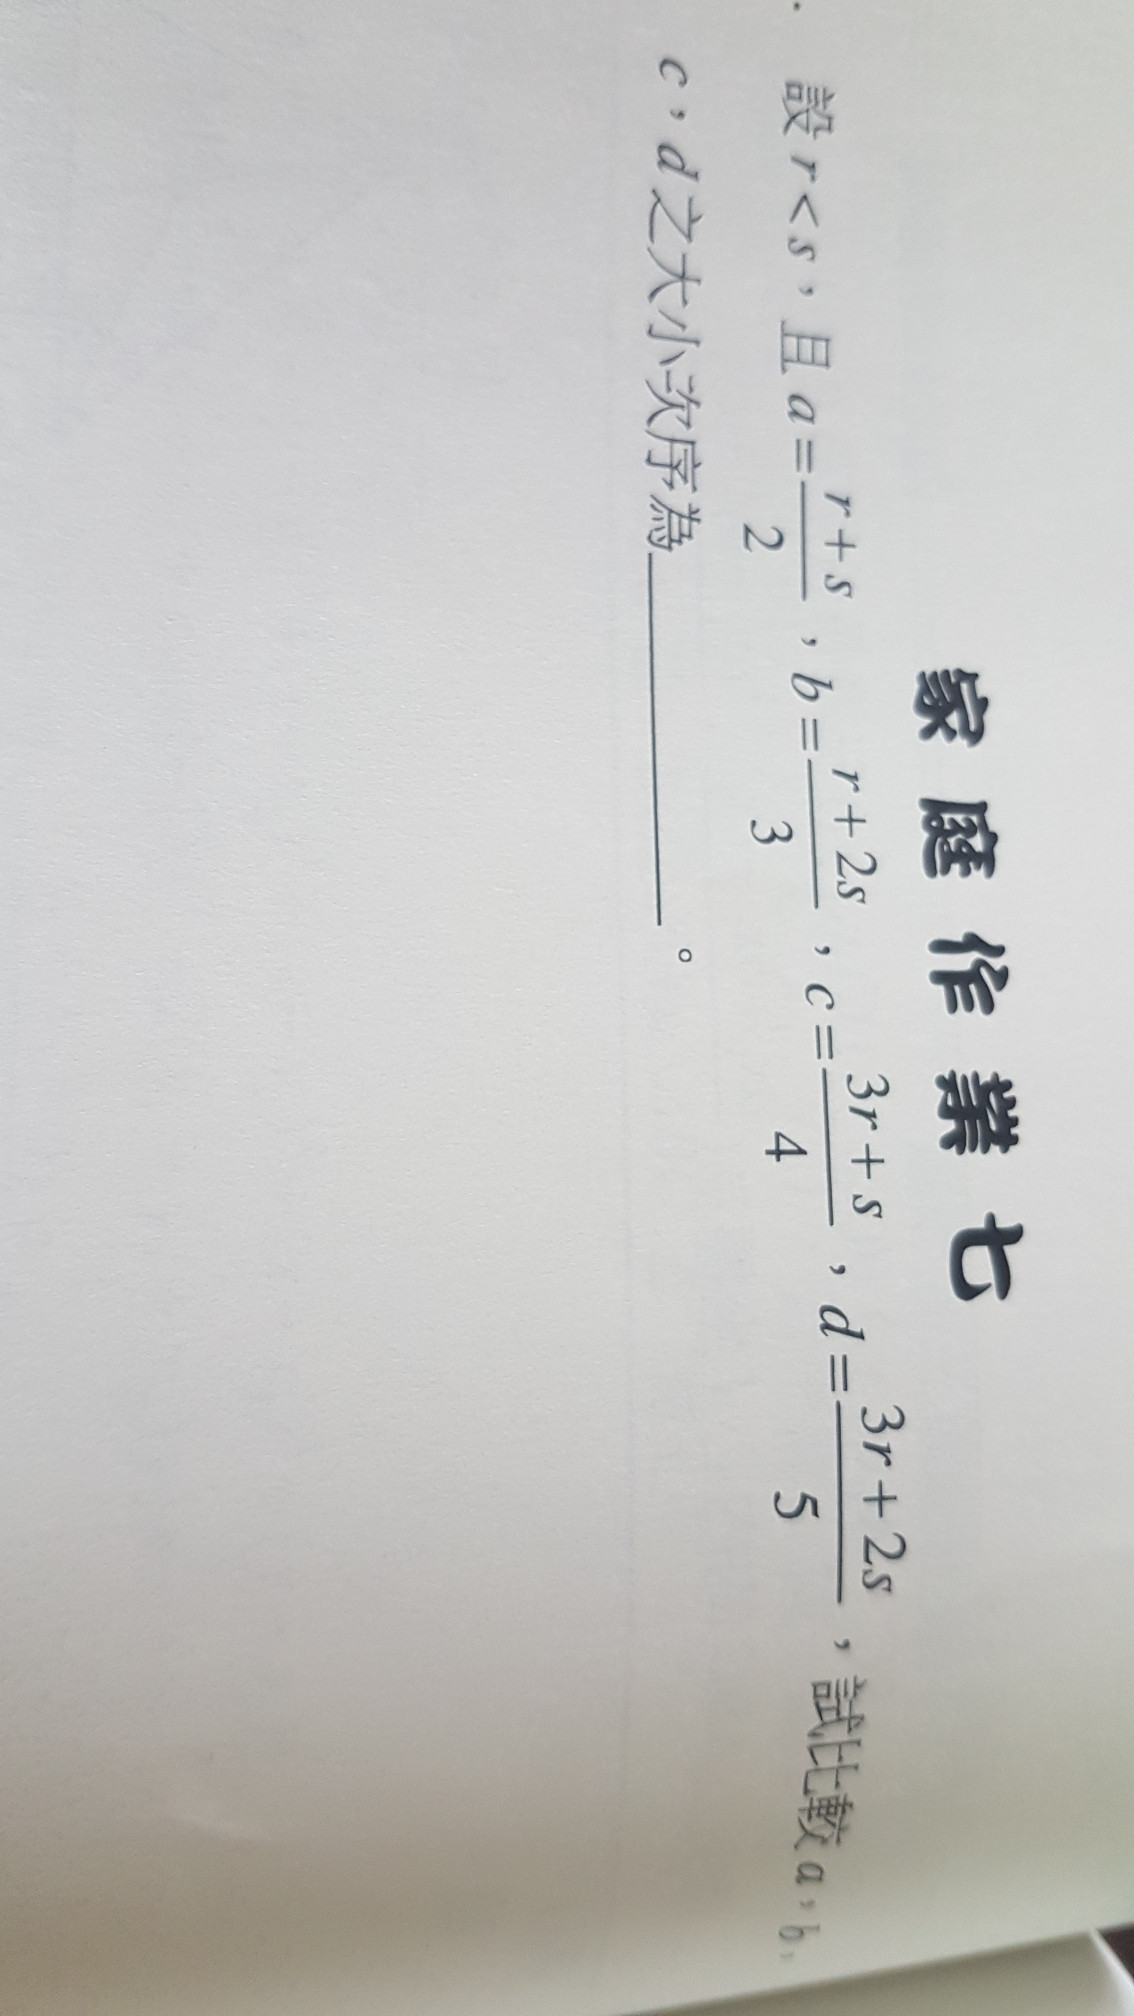 家庭作業七
設 r < s，且 a = \frac{r+s}{2}，b = \frac{r+2s}{3}，c = \frac{3r+s}{4}，d = \frac{3r+2s}{5}，試比較 a，b，
c，d 之大小次序為________。